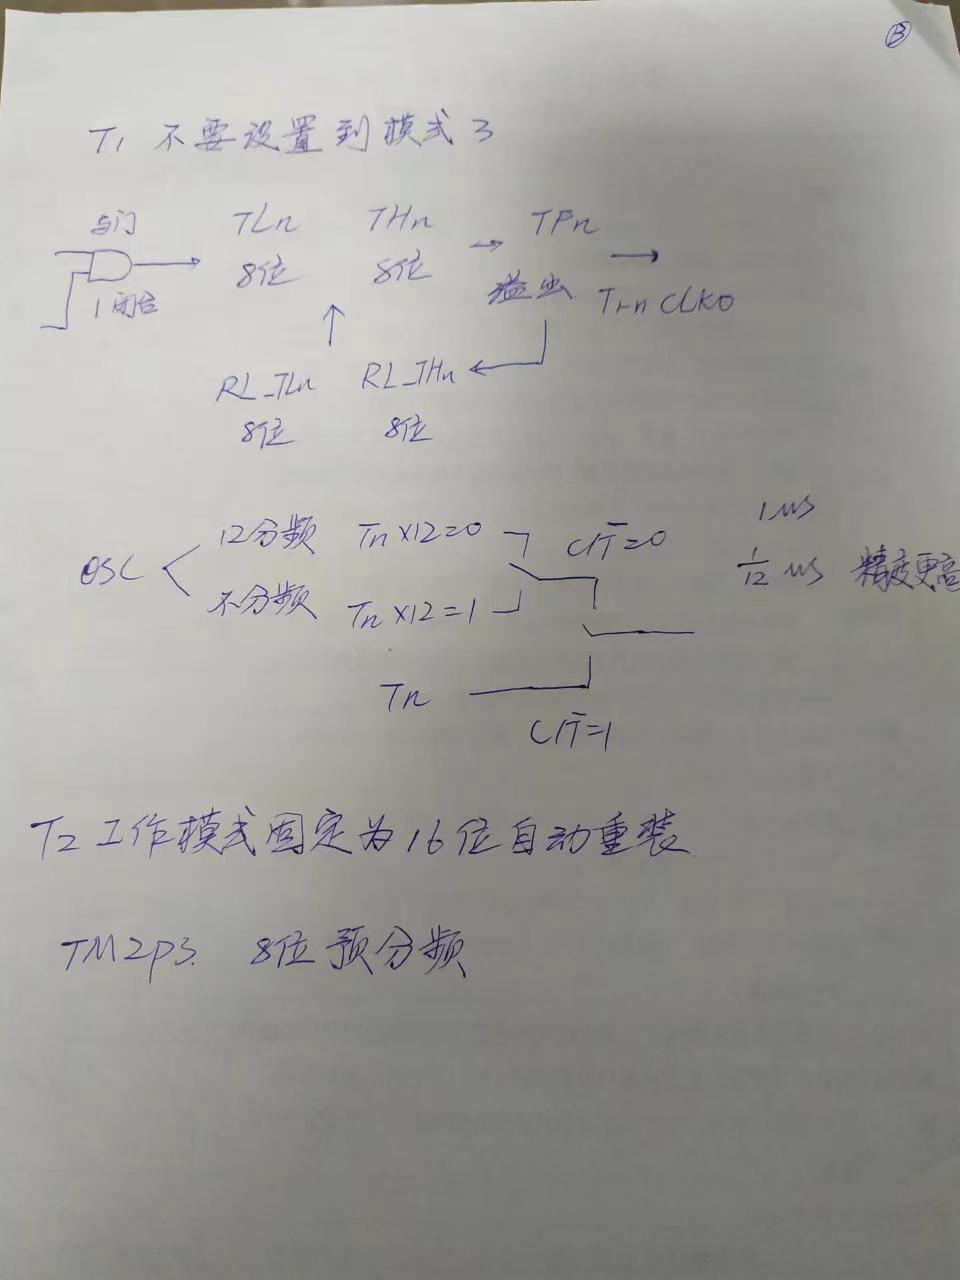 B
T1 不要设置到模式3
与门 TLn THn → TFn →
1闭合 8位 8位 溢出 TrnCLKO
RL_TLn RL_THn
8位 8位
1us
OSC 12分频 Tn×12=0 C/T̅=0
1/12 us 精度更高
不分频 Tn×12=1
Tn
C/T̅=1
T2工作模式固定为16位自动重装
TM2P3. 8位预分频